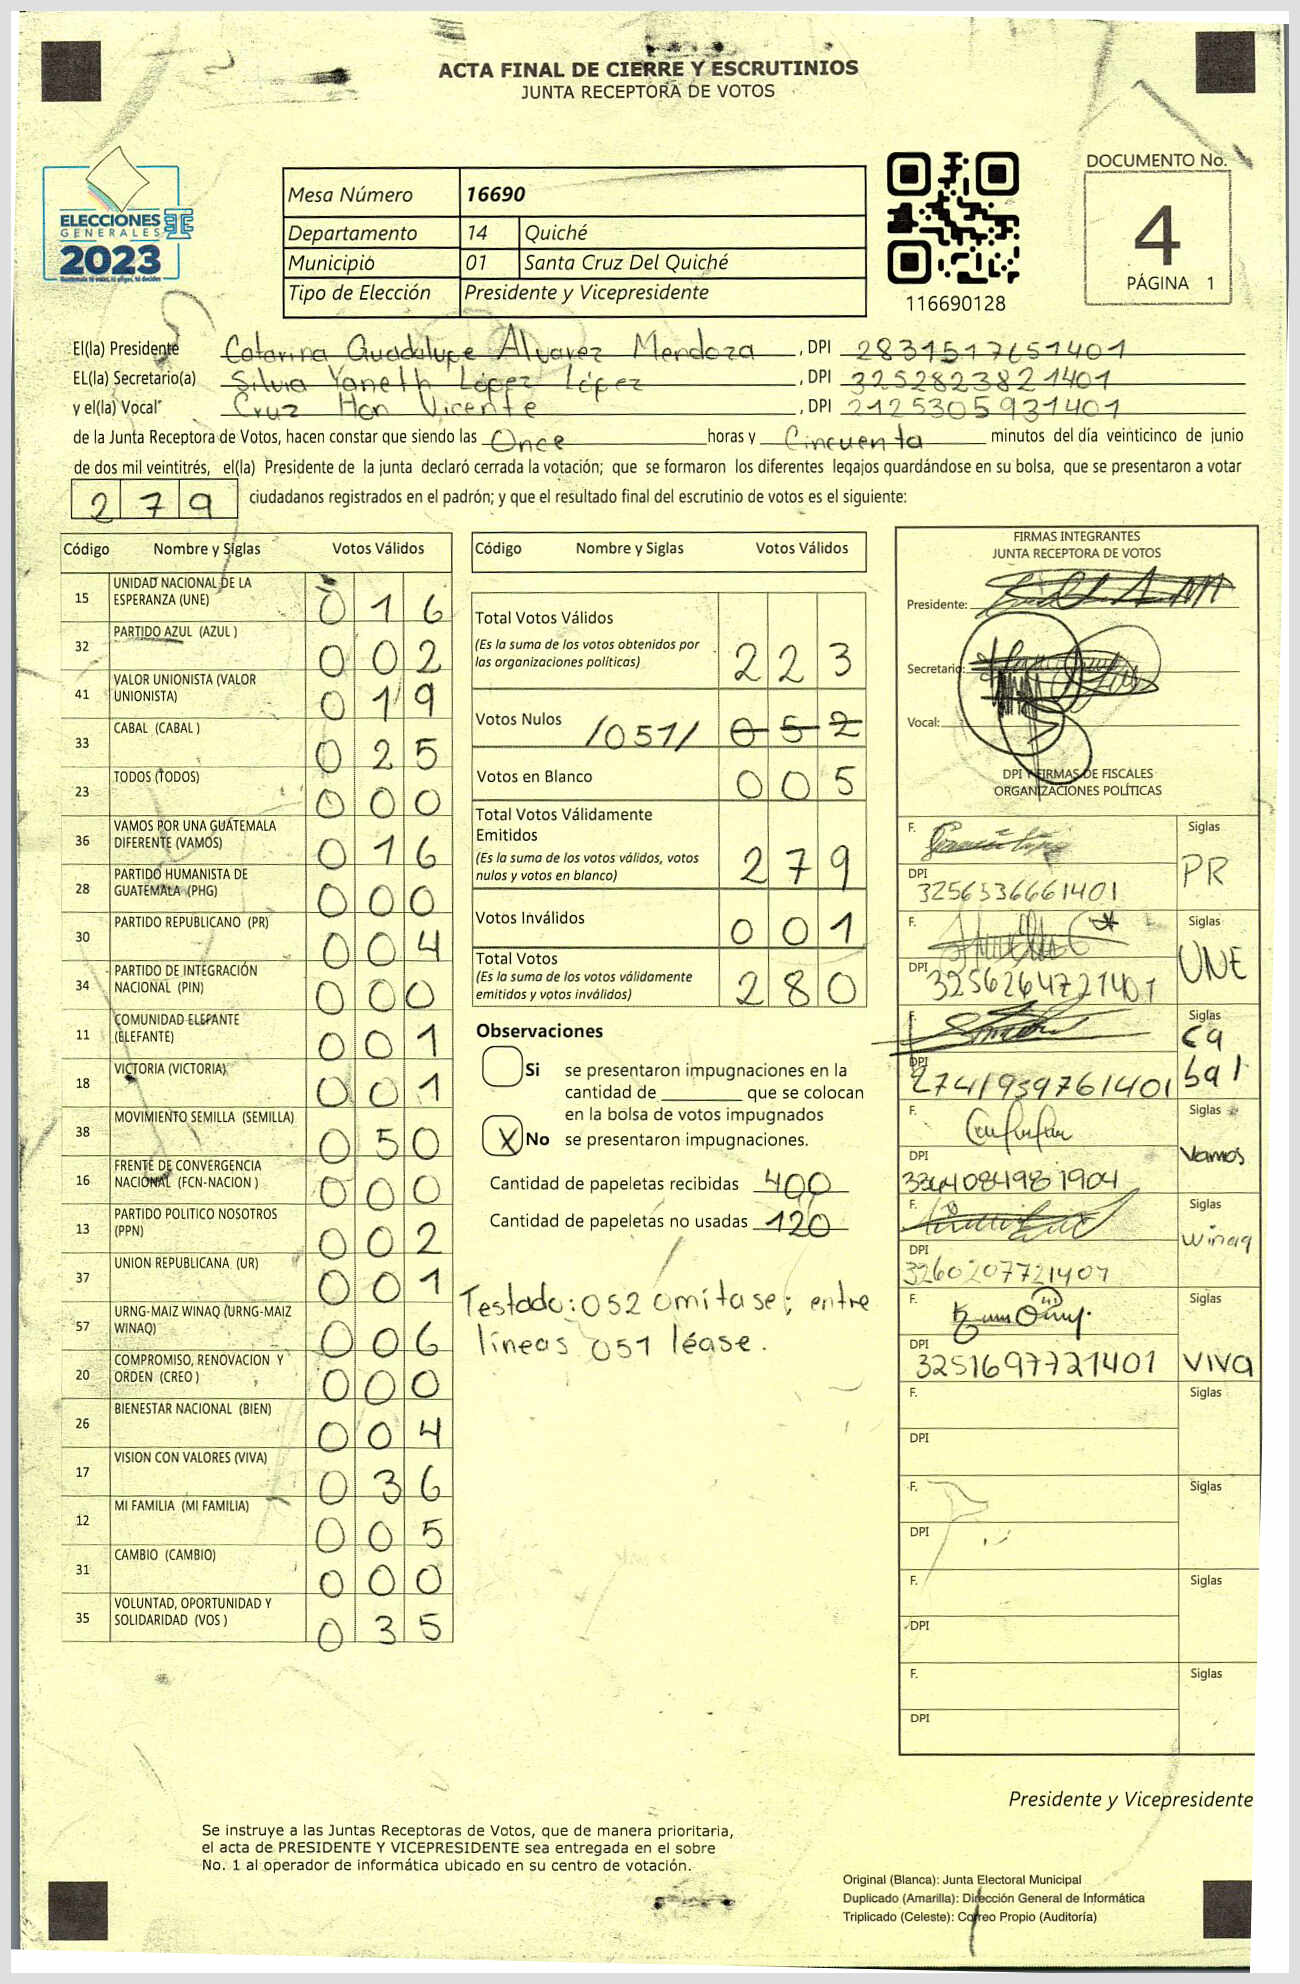 ACTA FINAL DE CIERRE Y ESCRUTINIOS
JUNTA RECEPTORA DE VOTOS
ELECCIONES
GENERALES
2023
Mesa Número 16690
Departamento 14 Quiché
Municipio 01 Santa Cruz Del Quiché
Tipo de Elección Presidente y Vicepresidente
116690128
DOCUMENTO No.
4
PÁGINA 1
El(la) Presidente Catarina Guadalupe Alvarez Mendoza, DPI 2831517651401
EL(la) Secretario(a) Silvia Yaneth López López, DPI 3252823821401
y el(la) Vocal Cruz Hon Vicente, DPI 2125305931401
de la Junta Receptora de Votos, hacen constar que siendo las Once horas y Cincuenta minutos del día veinticinco de junio
de dos mil veintitrés, el(la) Presidente de la junta declaró cerrada la votación; que se formaron los diferentes legajos guardándose en su bolsa, que se presentaron a votar
279 ciudadanos registrados en el padrón; y que el resultado final del escrutinio de votos es el siguiente:
Código Nombre y Siglas Votos Válidos
15 UNIDAD NACIONAL DE LA ESPERANZA (UNE) 016
32 PARTIDO AZUL (AZUL ) 002
41 VALOR UNIONISTA (VALOR UNIONISTA) 019
33 CABAL (CABAL ) 025
23 TODOS (TODOS) 000
36 VAMOS POR UNA GUATEMALA DIFERENTE (VAMOS) 016
28 PARTIDO HUMANISTA DE GUATEMALA (PHG) 000
30 PARTIDO REPUBLICANO (PR) 004
34 PARTIDO DE INTEGRACIÓN NACIONAL (PIN) 000
11 COMUNIDAD ELEFANTE (ELEFANTE) 001
18 VICTORIA (VICTORIA) 001
38 MOVIMIENTO SEMILLA (SEMILLA) 050
16 FRENTE DE CONVERGENCIA NACIONAL (FCN-NACION ) 000
13 PARTIDO POLITICO NOSOTROS (PPN) 002
37 UNION REPUBLICANA (UR) 001
57 URNG-MAIZ WINAQ (URNG-MAIZ WINAQ) 006
20 COMPROMISO, RENOVACION Y ORDEN (CREO ) 000
26 BIENESTAR NACIONAL (BIEN) 004
17 VISION CON VALORES (VIVA) 036
12 MI FAMILIA (MI FAMILIA) 005
31 CAMBIO (CAMBIO) 000
35 VOLUNTAD, OPORTUNIDAD Y SOLIDARIDAD (VOS ) 035
Código Nombre y Siglas Votos Válidos
Total Votos Válidos
(Es la suma de los votos obtenidos por
las organizaciones políticas) 223
Votos Nulos /051/ 052
Votos en Blanco 005
Total Votos Válidamente
Emitidos
(Es la suma de los votos válidos, votos
nulos y votos en blanco) 279
Votos Inválidos 001
Total Votos
(Es la suma de los votos válidamente
emitidos y votos inválidos) 280
Observaciones
Si se presentaron impugnaciones en la
cantidad de ________ que se colocan
en la bolsa de votos impugnados
X No se presentaron impugnaciones.
Cantidad de papeletas recibidas 400
Cantidad de papeletas no usadas 120
Testado: 052 omítase; entre
líneas 051 léase.
FIRMAS INTEGRANTES
JUNTA RECEPTORA DE VOTOS
Presidente:
Secretario:
Vocal:
DPI Y FIRMAS DE FISCALES
ORGANIZACIONES POLÍTICAS
F. Siglas
PR
DPI 3256536661401
F. Siglas
UNE
DPI 3256264721401
F. Siglas
Cabal
DPI 2741939761401
F. Siglas
Vamos
DPI 3364084981904
F. Siglas
winaq
DPI 3260207721401
F. Siglas
DPI 3251697721401 VIVA
F. Siglas
DPI
F. Siglas
DPI
F. Siglas
DPI
F. Siglas
DPI
Presidente y Vicepresidente
Se instruye a las Juntas Receptoras de Votos, que de manera prioritaria,
el acta de PRESIDENTE Y VICEPRESIDENTE sea entregada en el sobre
No. 1 al operador de informática ubicado en su centro de votación.
Original (Blanca): Junta Electoral Municipal
Duplicado (Amarilla): Dirección General de Informática
Triplicado (Celeste): Correo Propio (Auditoría)